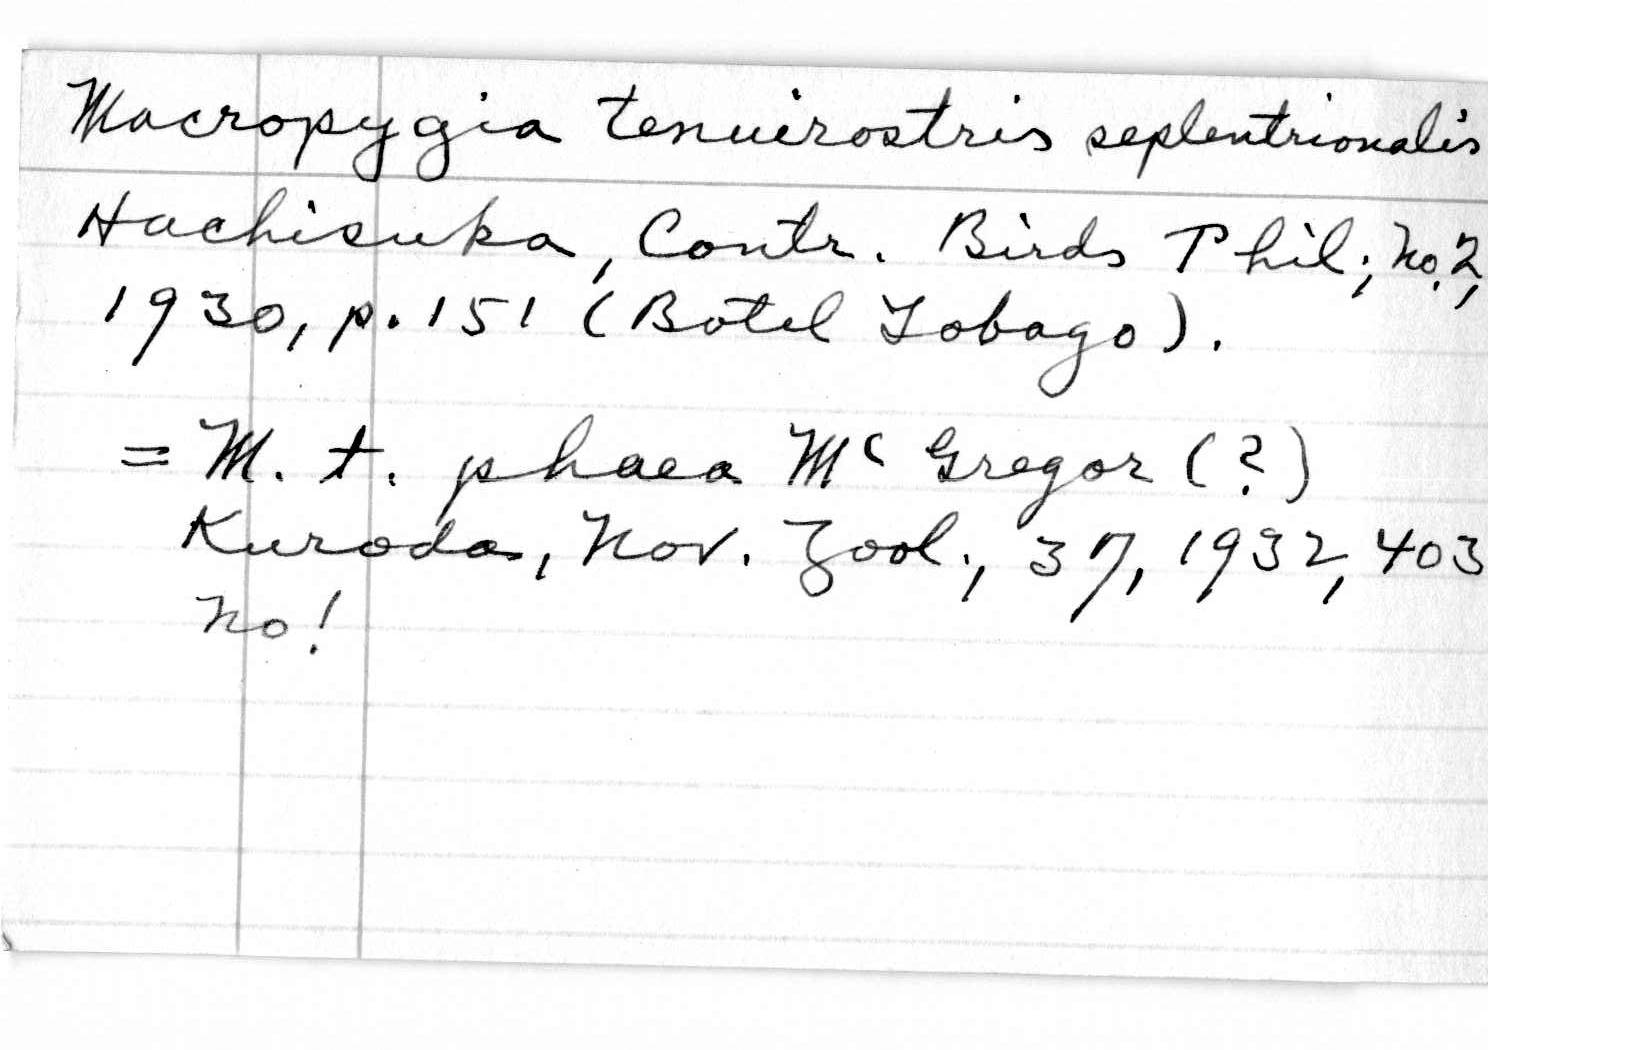 Macropygia tenuirostris septentrionalis
Hachisuka, Contr. Birds Phil., no. 2,
1930, p. 151 (Botel Tobago).
= M. t. phaea McGregor (?)
Kuroda, Nov. Zool., 37, 1932, 403
no!